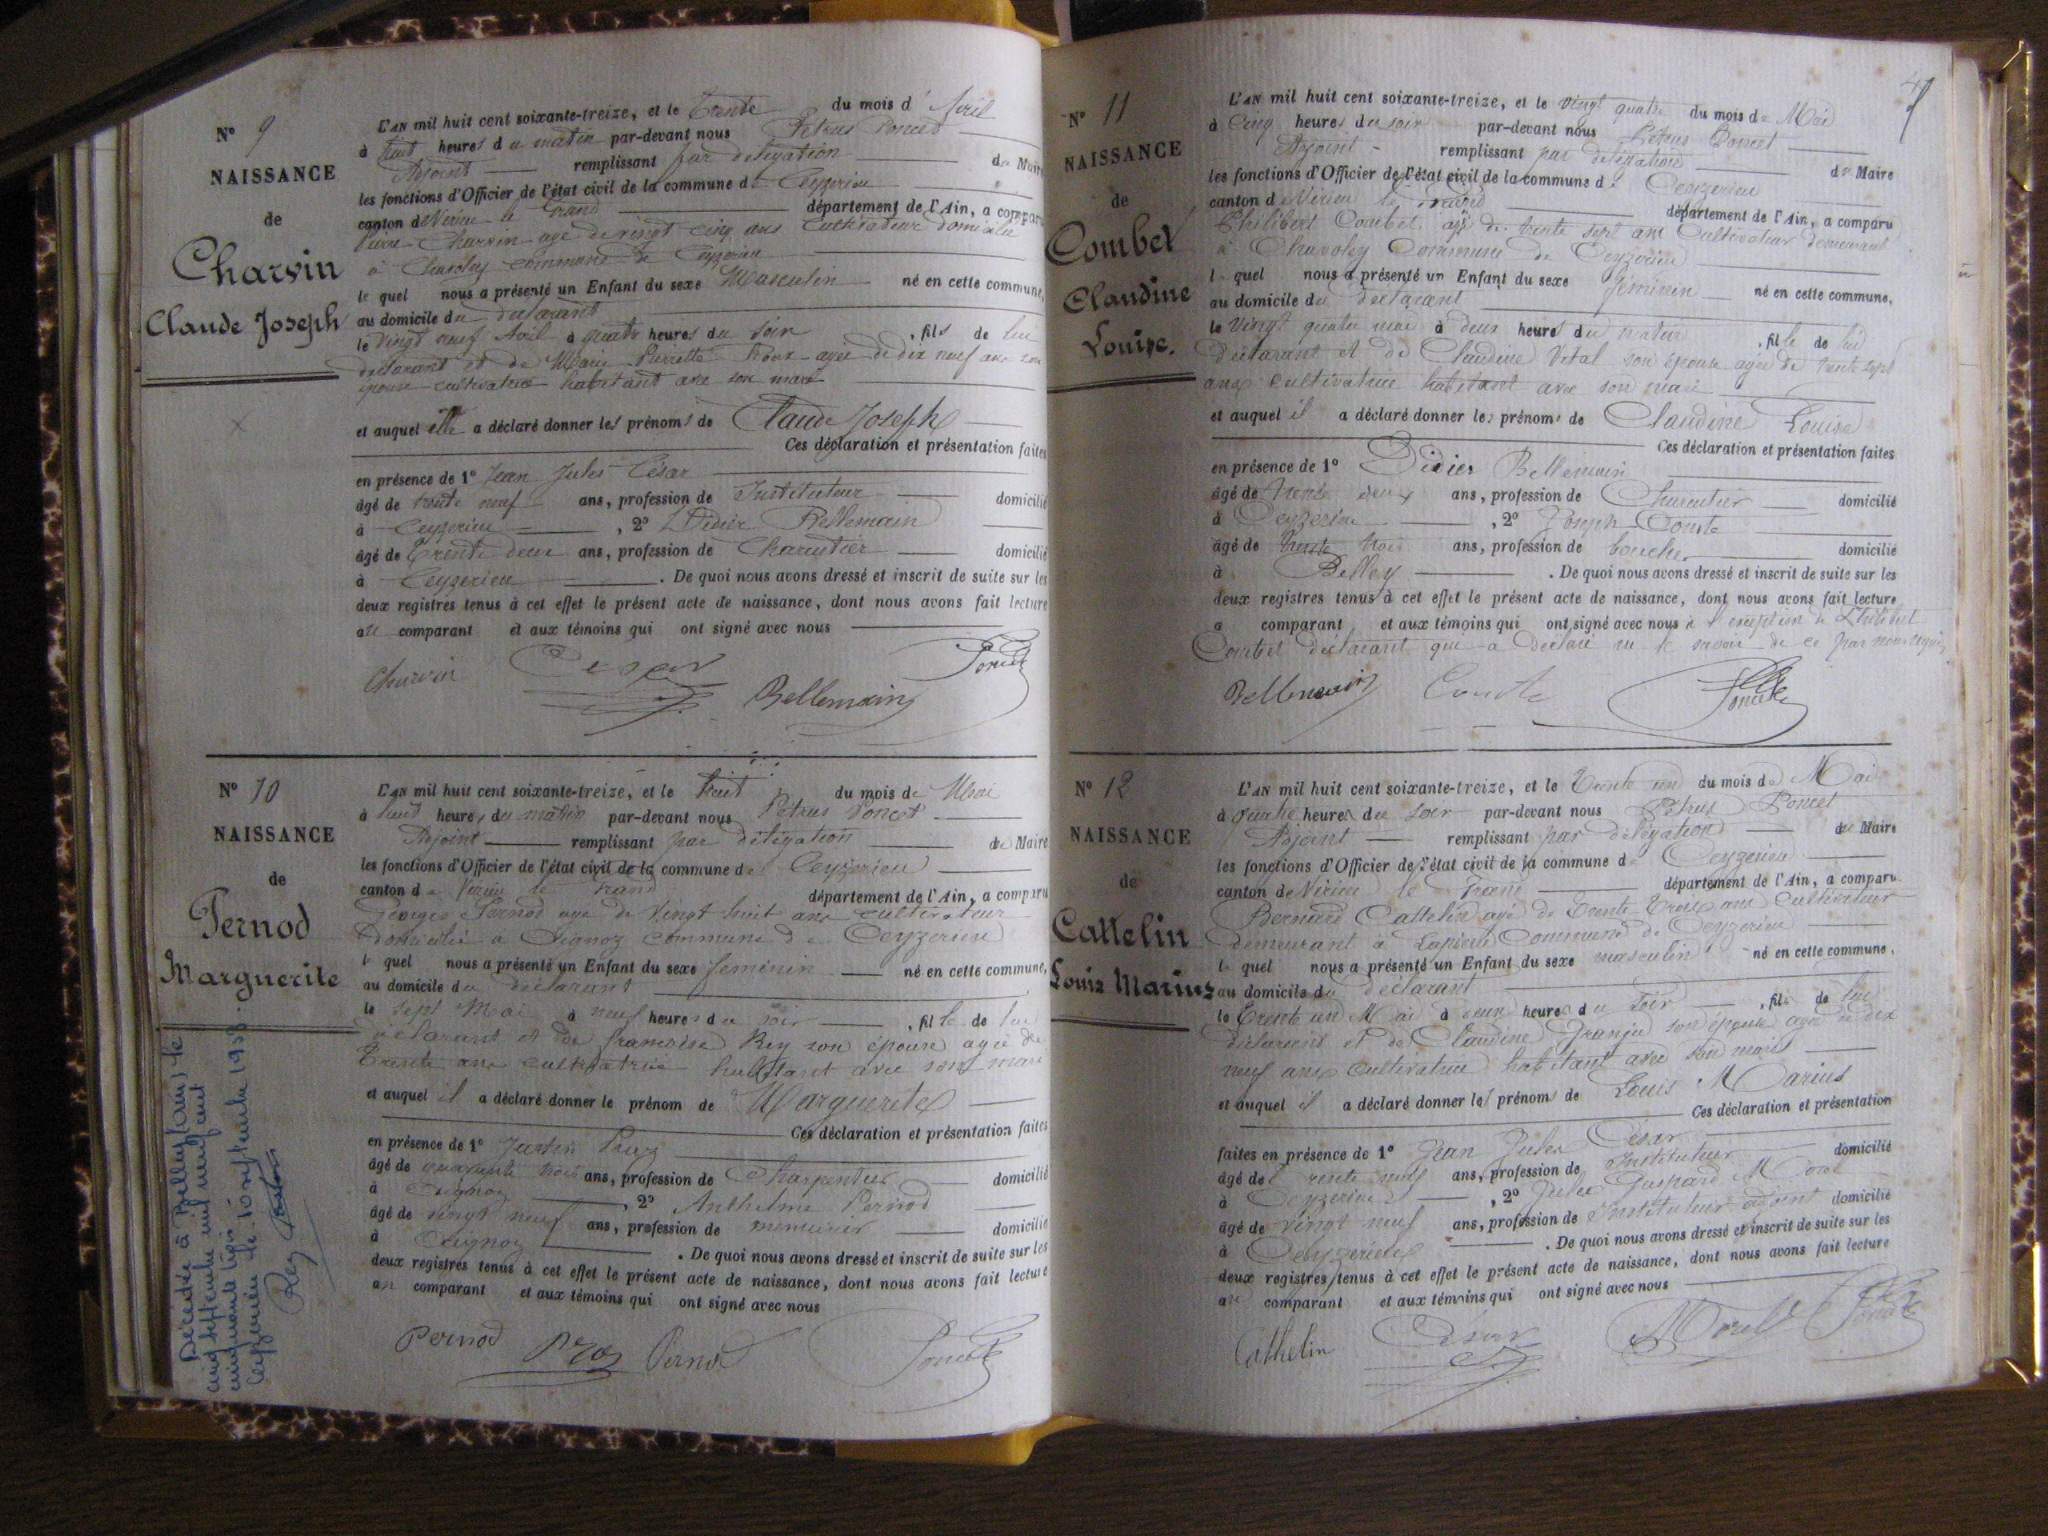 N° 9
NAISSANCE
de
Charvin
Claude Joseph
L'AN mil huit cent soixante-treize, et le trente du mois d' Avril
à huit heures du matin par-devant nous Pétrus Poncet
Adjoint remplissant par délégation de Maire
les fonctions d'Officier de l'état civil de la commune de Ceyzerieu
canton de Virieu le Grand département de l'Ain, a comparu
Pierre Charvin agé de vingt cinq ans Cultivateur domicilié
à Chavoley commune de Ceyzerieu
le quel nous a présenté un Enfant du sexe Masculin né en cette commune,
au domicile du déclarant
le vingt neuf Avril à quatre heures du soir , fils de lui
déclarant et de Marie Pierrette agée de dix neuf ans son
épouse cultivatrice habitant avec son mari
et auquel a déclaré donner les prénoms de Claude Joseph
Ces déclaration et présentation faites
en présence de 1° Jean Jules César
âgé de trente neuf ans, profession de Instituteur domicilié
à Ceyzerieu , 2° Didier Bellemain
âgé de trente deux ans, profession de Charcutier domicilié
à Ceyzerieu . De quoi nous avons dressé et inscrit de suite sur les
deux registres tenus à cet effet le présent acte de naissance, dont nous avons fait lecture
au comparant et aux témoins qui ont signé avec nous
Charvin César Bellemain Poncet
N° 10
NAISSANCE
de
Pernod
Marguerite
Décédée à Belley (Ain) le
cinq septembre mil neuf cent
cinquante
Ceyzerieu le 10 septembre 1958.
L'AN mil huit cent soixante-treize, et le huit du mois de Mai
à huit heures du matin par-devant nous Pétrus Poncet
Adjoint remplissant par délégation de Maire
les fonctions d'Officier de l'état civil de la commune de Ceyzerieu
canton de Virieu le Grand département de l'Ain, a comparu
Georges Pernod agé de vingt huit ans cultivateur
domicilié à Avignoz commune de Ceyzerieu
le quel nous a présenté un Enfant du sexe féminin né en cette commune,
au domicile du déclarant
le sept Mai à neuf heures du soir , fille de lui
déclarant et de françoise Rey son épouse agée de
trente ans cultivatrice habitant avec son mari
et auquel il a déclaré donner le prénom de Marguerite
Ces déclaration et présentation faites
en présence de 1° Justin
âgé de quarante trois ans, profession de Charpentier domicilié
à Avignoz , 2° Anthelme Pernod
âgé de vingt neuf ans, profession de menuisier domicilié
à Avignoz . De quoi nous avons dressé et inscrit de suite sur les
deux registres tenus à cet effet le présent acte de naissance, dont nous avons fait lecture
au comparant et aux témoins qui ont signé avec nous
Pernod Pernod Poncet
N° 11
NAISSANCE
de
Combet
Claudine
Louise.
L'AN mil huit cent soixante-treize, et le vingt quatre du mois de Mai
à cinq heures du soir par-devant nous Pétrus Poncet
Adjoint remplissant par délégation de Maire
les fonctions d'Officier de l'état civil de la commune de Ceyzerieu
canton d Virieu le Grand département de l'Ain, a comparu
Philibert Combet agé de trente sept ans Cultivateur demeurant
à Chavoley Commune de Ceyzerieu
le quel nous a présenté un Enfant du sexe féminin né en cette commune,
au domicile du déclarant
le vingt quatre mai à deux heures du matin , fille de lui
déclarant et de Claudine Vital son épouse agée de trente sept
ans cultivatrice habitant avec son mari
et auquel il a déclaré donner les prénoms de Claudine Louise
Ces déclaration et présentation faites
en présence de 1° Didier Bellemain
âgé de trente deux ans, profession de Charcutier domicilié
à Ceyzerieu , 2° Joseph Comte
âgé de trente trois ans, profession de boucher domicilié
à Belley . De quoi nous avons dressé et inscrit de suite sur les
deux registres tenus à cet effet le présent acte de naissance, dont nous avons fait lecture
a comparant et aux témoins qui ont signé avec nous à l'exception de Philibert
Combet déclarant qui a déclaré ne le savoir de ce par nous requis
Bellemain Comte Poncet
N° 12
NAISSANCE
de
Cattelin
Louis Marius
L'AN mil huit cent soixante-treize, et le trente un du mois de Mai
à quatre heures du soir par-devant nous Pétrus Poncet
Adjoint remplissant par délégation de Maire
les fonctions d'Officier de l'état civil de la commune de Ceyzerieu
canton de Virieu le Grand département de l'Ain, a comparu
Bernard Cattelin agé de trente trois ans Cultivateur
demeurant à Commune de Ceyzerieu
le quel nous a présenté un Enfant du sexe masculin né en cette commune.
au domicile du déclarant
le trente un Mai à deux heures du soir , fils de lui
déclarant et de Claudine son épouse agée de dix
neuf ans cultivatrice habitant avec son mari
et auquel il a déclaré donner les prénoms de Louis Marius
Ces déclaration et présentation
faites en présence de 1° Jean Jules César
âgé de trente neuf ans, profession de Instituteur domicilié
à Ceyzerieu , 2° Jules Gaspard Morel
âgé de vingt neuf ans, profession de Instituteur adjoint domicilié
à Ceyzerieu . De quoi nous avons dressé et inscrit de suite sur les
deux registres tenus à cet effet le présent acte de naissance, dont nous avons fait lecture
au comparant et aux témoins qui ont signé avec nous
Cathelin César Morel Poncet